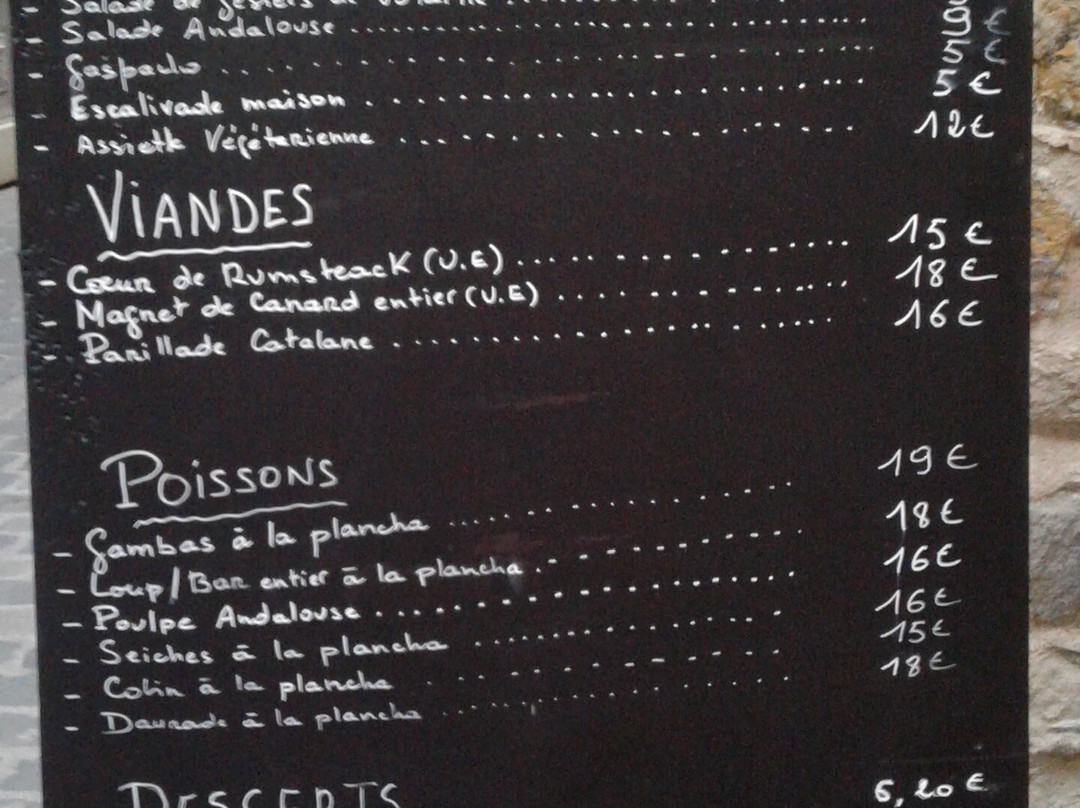 - Salade de Gésiers de Volaille ........
- Salade Andalouse ........ 9 €
- Gaspacho ........ 5 €
- Escalivade maison ........ 5 €
- Assiette Végétarienne ........ 12 €
VIANDES
- Coeur de Rumsteack (U.E) ........ 15 €
- Magret de Canard entier (U.E) ........ 18 €
- Parillade Catalane ........ 16 €
POISSONS
- Gambas à la plancha ........ 19 €
- Loup/Bar entier à la plancha ........ 18 €
- Poulpe Andalouse ........ 16 €
- Seiches à la plancha ........ 16 €
- Colin à la plancha ........ 15 €
- Daurade à la plancha ........ 18 €
DESSERTS 6,20 €